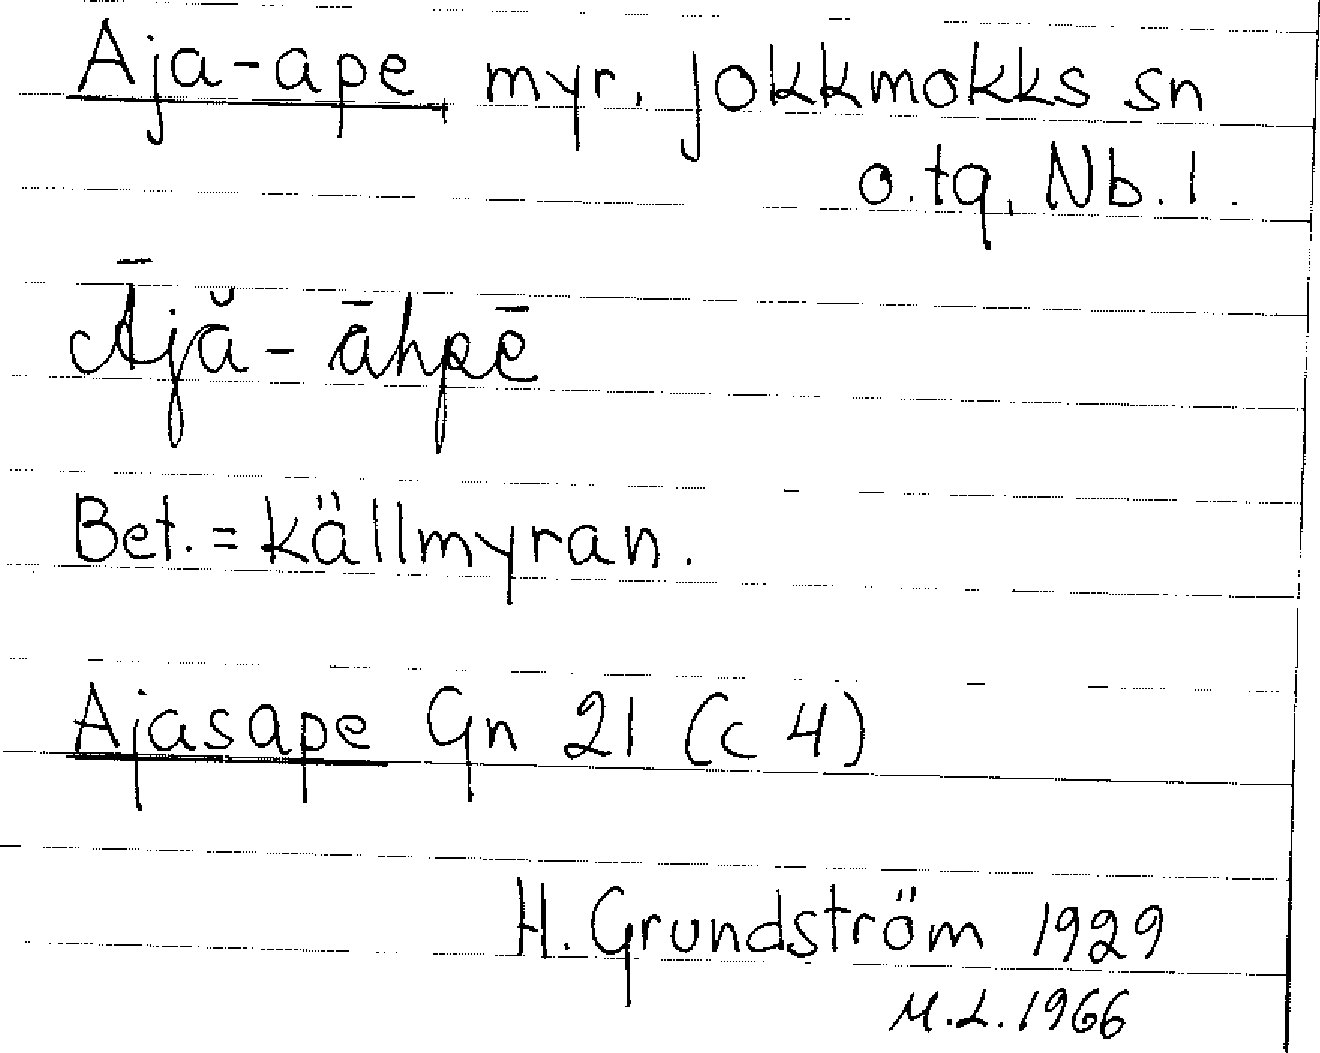 Aja-ape, myr, Jokkmokks sn
o.tg, Nb.l.
Ājă-āhpē
Bet. = källmyran.
Ajasape Gn 21 (c 4)
H. Grundström 1929
M.L. 1966